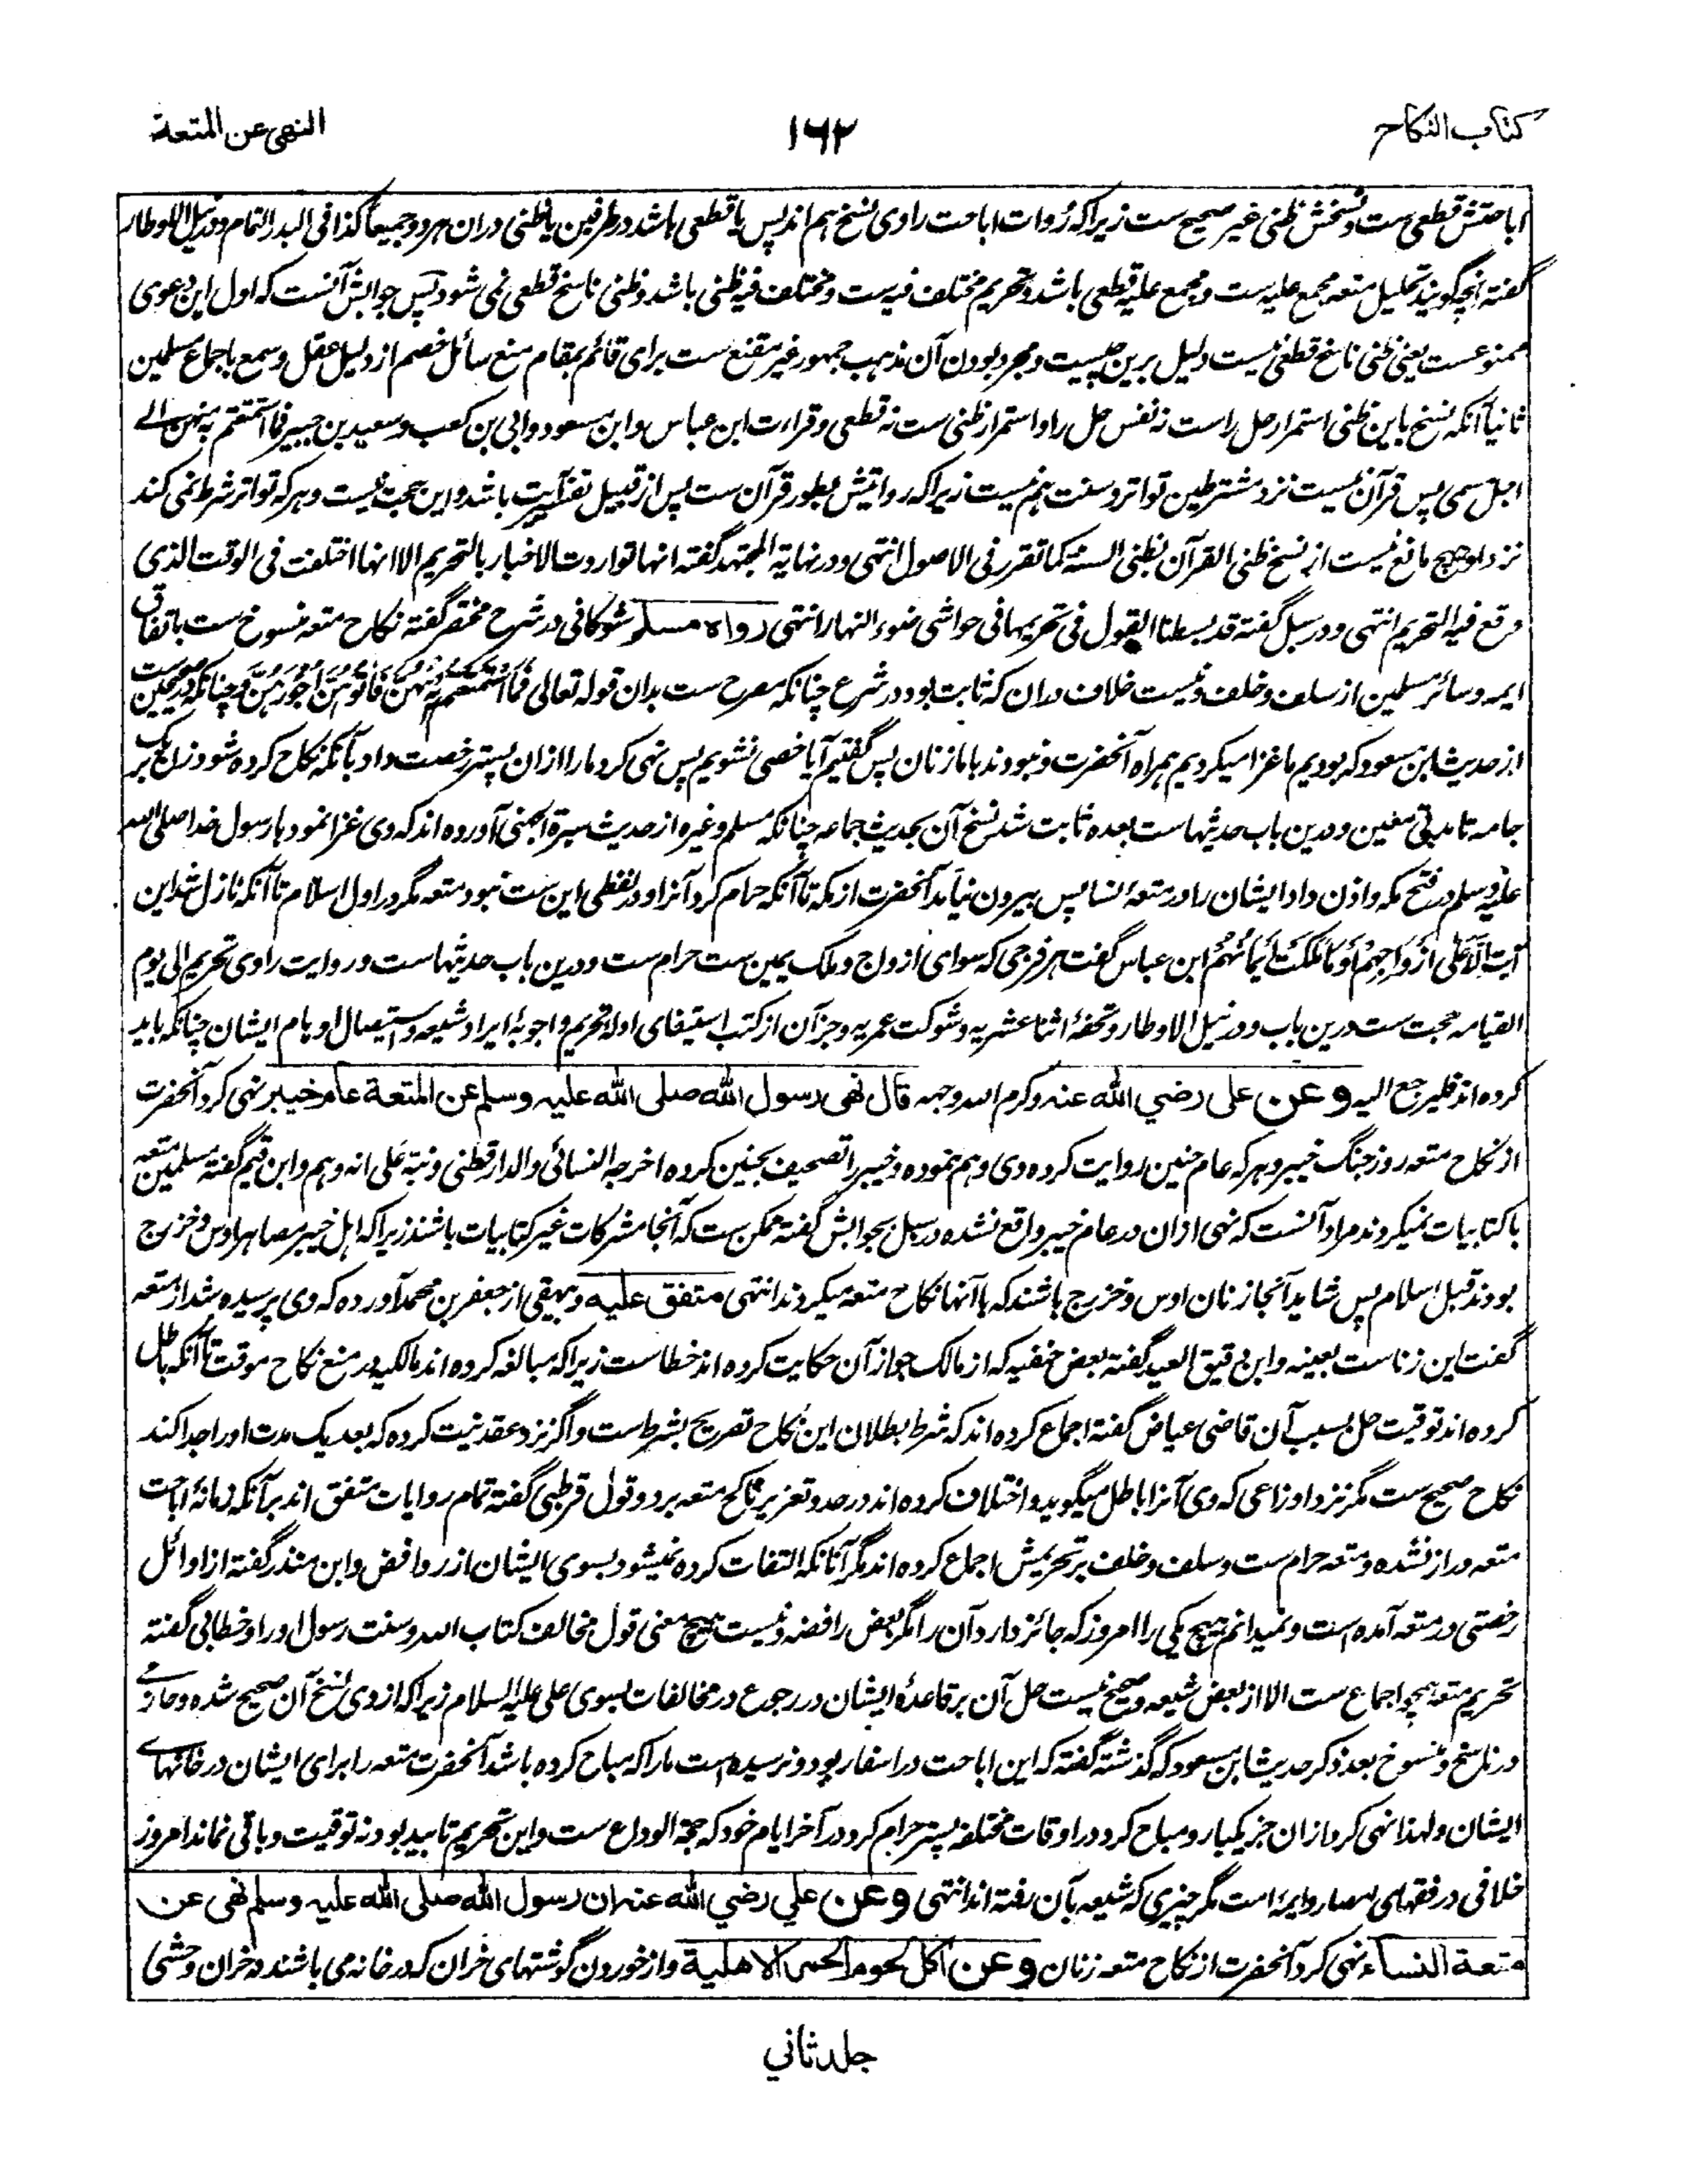 كتاب النكاح
١٦٢
النهي عن المتعة
اباحتش قطعی ست و نسخش ظنی غیر صحیح ست زیراکه رُوات اباحت راوی نسخ هم اند پس یا قطعی باشد در طرفین یا ظنی دران هر دو جمیعاً کذا فی البدر التمام و در نیل الاوطار
گفته آنچه گویند تحلیل متعه مجمع علیه ست و مجمع علیه قطعی باشد و تحریم مختلف فیه ست و مختلف فیه ظنی باشد و ظنی ناسخ قطعی نمی شود پس جوابش آنست که اول این دعوی
ممنوعست یعنی ظنی ناسخ قطعی نیست دلیل برین چیست و مجرد بودن آن مذهب جمهور غیر مقنع ست برای قائم بمقام منع سائل خصم از دلیل عقل و سمع باجماع مسلمین
ثانیاً آنکه نسخ باین ظنی استمرار حل راست نه نفس حل را و استمرار ظنی ست نه قطعی و قرارت ابن عباس و ابن مسعود و ابی بن کعب و سعید بن جبیر فما استمتعتم به منهن الے
اجل مسمی پس قرآن نیست نزد مشترطین تواتر و سنت هم نیست زیراکه روایتش بطور قرآن ست پس از قبیل تفسیر آیت باشد و این حجت نیست و هر که تواتر شرط نمی کند
نزد او هیچ مانع نیست از نسخ ظنی القرآن بظنی السنة کما تقرر فی الاصول انتهی و در نهایة المجتهد گفته انها تواردت الاخبار بالتحریم الا انها اختلفت فی الوقت الذی
وقع فیه التحریم انتهی و در سبل گفته قد بسطنا القول فی تحریمها فی حواشی ضوء النهار انتهی رواه مسلم شوکانی در شرح مختصر گفته نکاح متعه منسوخ ست باتفاق
ایمه و سائر مسلمین از سلف و خلف و نیست خلاف دران که ثابت بود در شرع چنانکه مصرح ست بدان قوله تعالی فَمَا اسْتَمْتَعْتُمْ بِهِ مِنْهُنَّ فَآتُوهُنَّ أُجُورَهُنَّ و چنانکه در صحیحین ست
از حدیث ابن مسعود که بودیم ما غزا میکردیم همراه آنحضرت و نبودند با ما زنان پس گفتیم آیا خصی نشویم پس نهی کرد ما را ازان پستر رخصت داد بآنکه نکاح کرده شود زن را بیک
جامه تا مدتی معین و درین باب حدیثهاست بعده ثابت شد نسخ آن بحدیث جماعه چنانکه مسلم و غیره از حدیث سبرة الجهنی آورده اند که وی غزا نمود با رسول خدا صلی الله
علیه وسلم در فتح مکه و اذن داد ایشان را در متعهٔ نسا پس بیرون نیامد آنحضرت از مکه تا آنکه حرام کرد آنرا و در لفظی این ست نبود متعه مگر در اول اسلام تا آنکه نازل شد این
آیت إِلَّا عَلَى أَزْوَاجِهِمْ أَوْ مَا مَلَكَتْ أَيْمَانُهُمْ ابن عباس گفت هر فرجی که سوای ازواج و ملک یمین ست حرام ست و درین باب حدیثهاست و روایت راوی تحریم الی یوم
القیامه حجت ست درین باب و در نیل الاوطار و تحفهٔ اثنا عشریه و شوکت عمریه و جز آن از کتب استیفای ادله تحریم و اجوبهٔ ایراد شیعه و استیصال اوهام ایشان چنانکه باید
کرده اند فلیرجع الیه وعن علی رضي الله عنه وکرم الله وجهه قال نهی رسول الله صلی الله علیه وسلم عن المتعة عام خیبر نهی کرد آنحضرت
از نکاح متعه روز جنگ خیبر و هر که عام حنین روایت کرده وی وهم نموده و خیبر را تصحیف بحنین کرده اخرجه النسائی والدارقطنی ونبّه علی انه وهم و ابن قیم گفته مسلمین متعه
با کتابیات نمیکردند مراد آنست که نهی ازان در عام خیبر واقع نشده در سبل بجوابش گفته ممکن ست که آنجا مشرکات غیر کتابیات باشند زیراکه اهل خیبر مصاهر اوس و خزرج
بودند قبل اسلام پس شاید آنجا زنان اوس و خزرج باشند که باآنها نکاح متعه میکردند انتهی متفق علیه و بیهقی از جعفر بن محمد آورده که وی پرسیده شد از متعه
گفت این زناست بعینه و ابن دقیق العید گفته بعض حنفیه که از مالک جواز آن حکایت کرده اند خطاست زیراکه مبالغه کرده اند مالکیه در منع نکاح موقت تا آنکه باطل
کرده اند توقیت حل بسبب آن قاضی عیاض گفته اجماع کرده اند که شرط بطلان این نکاح تصریح بشرط ست و اگر نزد عقد نیت کرده که بعد یک مدت او را جدا کند
نکاح صحیح ست مگر نزد اوزاعی که وی آنرا باطل میگوید و اختلاف کرده اند در حد و تعزیر ناکح متعه بر دو قول قرطبی گفته تمام روایات متفق اند بر آنکه زمانهٔ اباحت
متعه دراز نشده و متعه حرام ست و سلف و خلف بر تحریمش اجماع کرده اند مگر آنانکه التفات کرده نمیشود بسوی ایشان از روافض و ابن منذر گفته از اوائل
رخصتی در متعه آمده است و نمیدانم هیچ یکی را امروز که جائز دارد آن را مگر بعض رافضه و نیست هیچ معنی قول مخالف کتاب الله و سنت رسول او را و خطابی گفته
تحریم متعه همچو اجماع ست الا از بعض شیعه و صحیح نیست حل آن بر قاعدهٔ ایشان در رجوع در مخالفات بسوی علی علیه السلام زیراکه از وی نسخ آن صحیح شده و حازمے
در ناسخ و منسوخ بعد ذکر حدیث ابن مسعود که گذشته گفته که این اباحت در اسفار بود و نرسیده است ما را که مباح کرده باشد آنحضرت متعه را برای ایشان در خانهاے
ایشان و لهذا نهی کرد ازان جز یکبار و مباح کرد در اوقات مختلفه پستر حرام کرد در آخر ایام خود که حجة الوداع ست و این تحریم تابید بود نه توقیت و باقی نماند امروز
خلافی در فقهای امصار و ایمهٔ امت مگر چیزی که شیعه بآن رفته اند انتهی وعن علي رضي الله عنه ان رسول الله صلی الله علیه وسلم نهی عن
متعة النساء نهی کرد آنحضرت از نکاح متعه زنان وعن اکل لحوم الحمر الاهلیة و از خوردن گوشتهای خران که در خانه می باشند نه خران وحشی
جلد ثاني